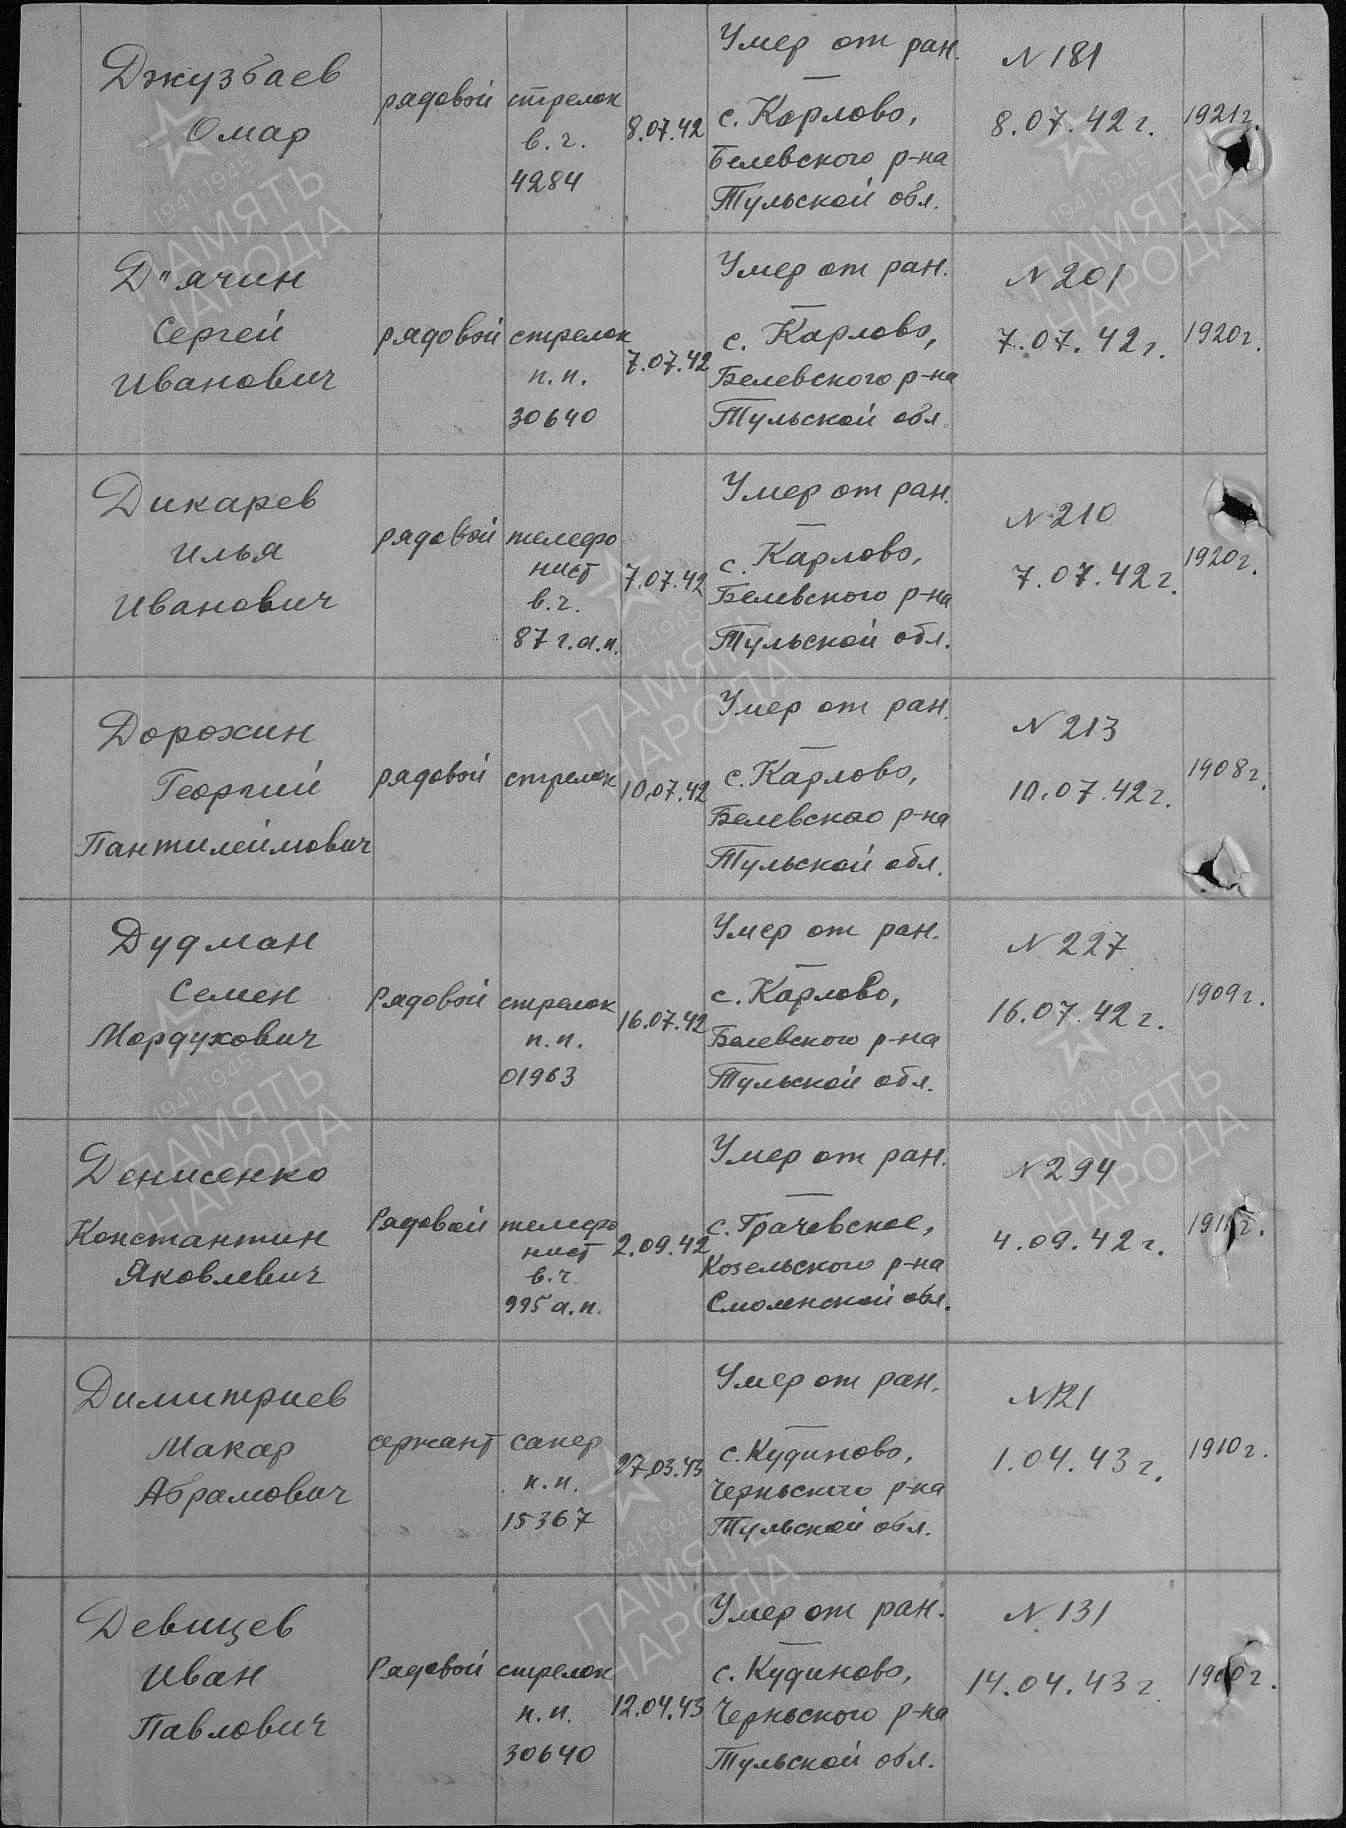 Джузбаев
Омар
рядовой
стрелок
в.ч.
4284
8.07.42
Умер от ран.
с. Карлово,
Белевского р-на
Тульской обл.
N 181
8.07.42 г.
1921г.
Д"ячин
Сергей
Иванович
рядовой
стрелок
п.п.
30640
7.07.42
Умер от ран.
с. Карлово,
Белевского р-на
Тульской обл.
N 201
7.07.42 г.
1920г.
Дикарев
Илья
Иванович
рядовой
телефо
нист
в.ч.
87 г.а.п.
7.07.42
Умер от ран.
с. Карлово,
Белевского р-на
Тульской обл.
N 210
7.07.42 г.
1920г.
Дорохин
Георгий
Пантилеймович
рядовой
стрелок
10.07.42
Умер от ран.
с. Карлово,
Белевского р-на
Тульской обл.
N 213
10.07.42 г.
1908г.
Дудман
Семен
Мордухович
Рядовой
стрелок
п.п.
01963
16.07.42
Умер от ран.
с. Карлово,
Белевского р-на
Тульской обл.
N 227
16.07.42 г.
1909г.
Денисенко
Константин
Яковлевич
Рядовой
телефо
нист
в.ч.
995 а.п.
2.09.42
Умер от ран.
с. Грачевское,
Козельского р-на
Смоленской обл.
N 294
4.09.42 г.
Димитриев
Макар
Абрамович
сержант
сапер
п.п.
15367
27.03.43
Умер от ран.
с. Кудиново,
Черньского р-на
Тульской обл.
N 121
1.04.43 г.
1910г.
Девицев
Иван
Павлович
Рядовой
стрелок
п.п.
30640
12.04.43
Умер от ран.
с. Кудиново,
Черньского р-на
Тульской обл.
N 131
14.04.43 г.
1941-1945
ПАМЯТЬ
НАРОДА
1941-1945
ПАМЯТЬ
НАРОДА
1941-1945
ПАМЯТЬ
НАРОДА
1941-1945
ПАМЯТЬ
НАРОДА
1941-1945
ПАМЯТЬ
НАРОДА
1941-1945
ПАМЯТЬ
НАРОДА